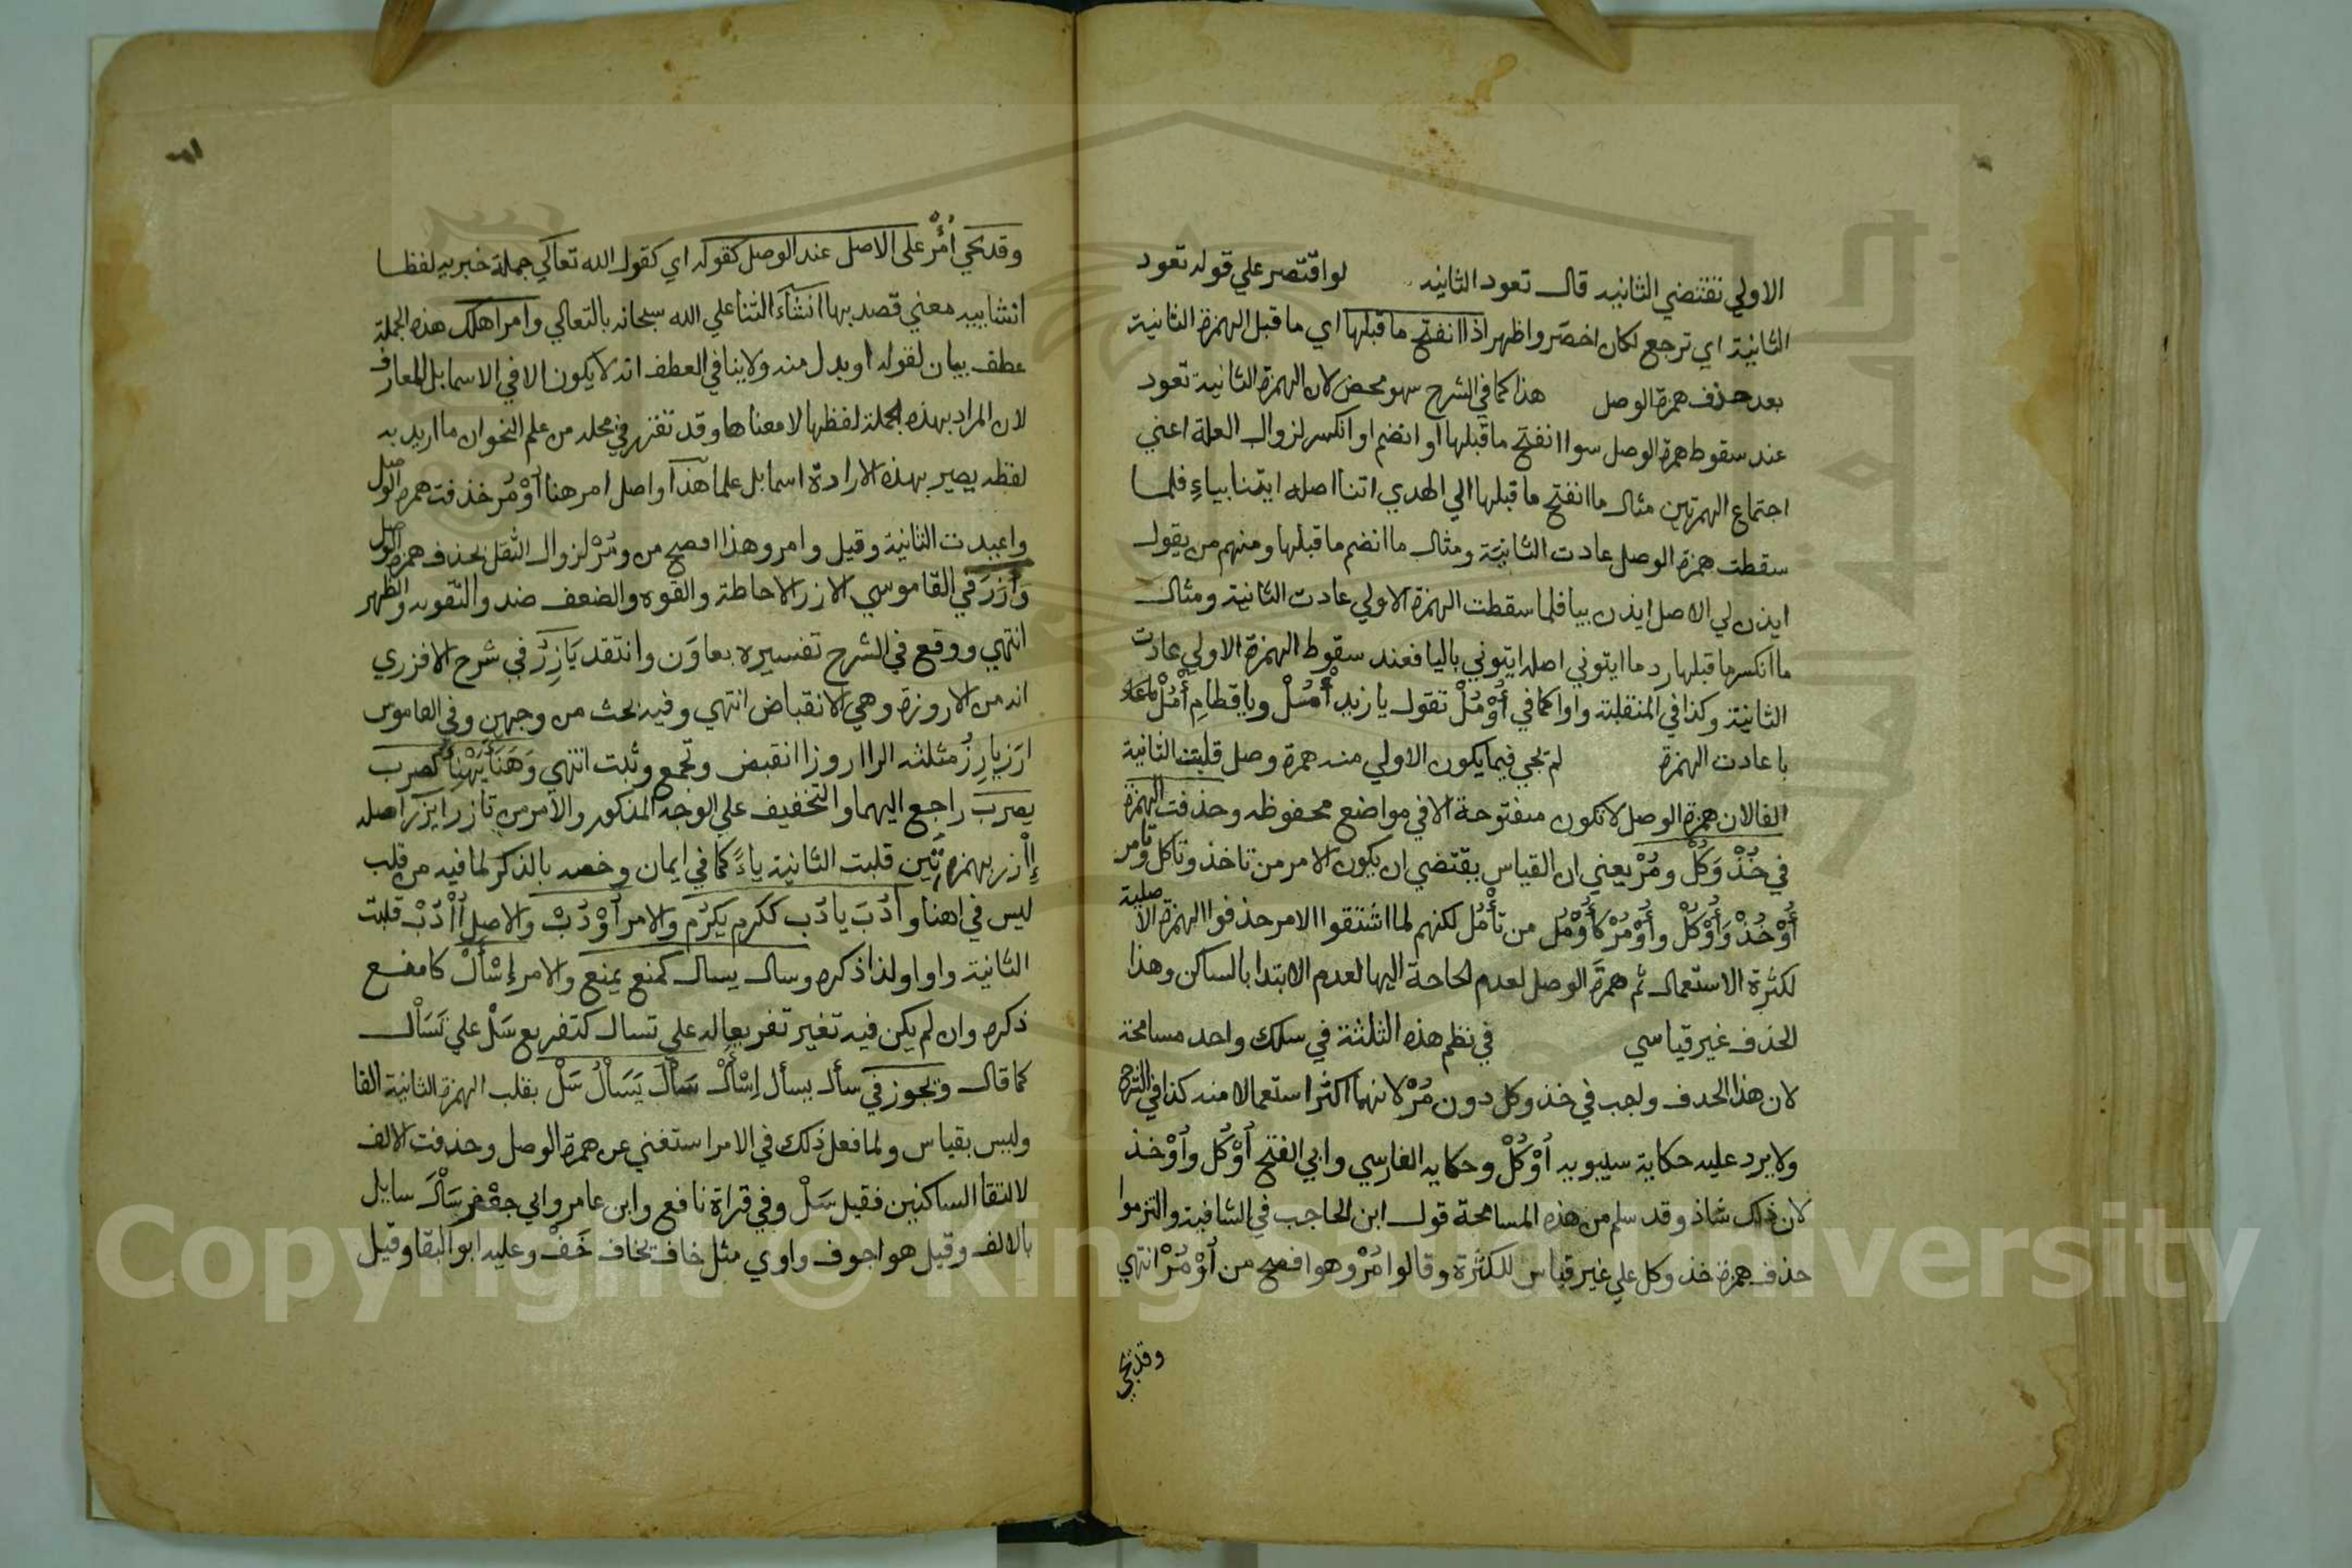 الاولي تقتضي الثانيه قال تعود الثانيه لو اقتصر علي قوله تعود
الثانية اي ترجع لكان اخصر واظهر اذا انفتح ما قبلها اي ما قبل الهمزة الثانية
بعد حذف همزة الوصل هذا كما في الشرح سهو محض لان الهمزة الثانية تعود
عند سقوط همزة الوصل سوا انفتح ما قبلها او انضم او انكسر لزوال العلة اعني
اجتماع الهمزتين مثال ما انفتح ما قبلها الي الهدي اتنا اصله ايتنا بياءٍ فلما
سقطت همزة الوصل عادت الثانية ومثال ما انضم ما قبلها ومنهم من يقول
ايذن لي الاصل ايذن بيا فلما سقطت الهمزة الاولي عادت الثانية ومثال
ما انكسر ما قبلها رد ما ايتوني اصله ايتوني باليا فعند سقوط الهمزة الاولي عادت
الثانية وكذا في المنقلبة واوا كما في أُوْمُلْ تقول يا زيد أْمُلْ ويا قطامِ أْمُلْ
با عادت الهمزة لم تجي فيما يكون الاولي منه همزة وصل قلبت الثانية
الفا لان همزة الوصل لا تكون مفتوحة الا في مواضع محفوظه وحذفت الهمزة
في خُذْ وَكُلْ ومُرْ يعني ان القياس يقتضي ان يكون الامر من تاخذ وتاكل وتامر
أُوْخُذْ وَأُوْكُلْ وأُوْمُرْ كأُوْمُل من تأْمُل لكنهم لما اشتقوا الامر حذفوا الهمزة الاصلية
لكثرة الاستعمال ثم همزة الوصل لعدم الحاجة اليها لعدم الابتدا بالساكن وهذا
الحذف غير قياسي في نظم هذه الثلثة في سلك واحد مسامحة
لان هذا الحذف واجب في خذ وكل دون مُرْ لانهما اكثر استعمالا منه كذا في الشرح
ولا يرد عليه حكاية سيبويه أُوْكُلْ وحكايه الفارسي وابي الفتح أُوْكُل وأُوْخذ
لان ذلك شاذ وقد سلم من هذه المسامحة قول ابن الحاجب في الشافية والتزموا
حذف همزة خذ وكل علي غير قياس للكثرة وقالوا مُرْ وهو افصح من أُوْمُرْ انتهي
وقد يجي
وقد يجي أْمُرْ على الاصل عند الوصل كقوله اي كقول الله تعالي جملة خبريه لفظا
انشاييه معني قصد بها انشاء الثنا علي الله سبحانه بالتعالي وامر اهلك هذه الجملة
عطف بيان لقوله او بدل منه ولا ينافي العطف انه لا يكون الا في الاسما بل المعارف
لان المراد بهذه الجملة لفظها لا معناها وقد تقرر في محله من علم النحو ان ما اريد به
لفظه يصير بهذه الارادة اسما بل علما هذا واصل امر هنا أُوْمُر حذفت همزة الوصل
واعيدت الثانية وقيل وامر وهذا افصح من ومُرْ لزوال الثقل بحذف همزة الوصل
وَأَزَرَ في القاموس الازر الاحاطة والقوه والضعف ضد والتقويه والظهر
انتهي ووقع في الشرح تفسيره بعاوَن وانتقد يَازِرُ في شرح الافزري
انه من الاروزة وهي الانقباض انتهي وفيه بحث من وجهين وفي القاموس
ارَز يارِزُ مثلثه الرا اروزا انقبض وتجمع وثبت انتهي وَهَنَأَ يَهْنِأُ كضرب
يضرب راجع اليهما والتخفيف علي الوجه المذكور والامر من تازر ايزر اصله
إِأْزر بهمزتَين قلبت الثانية ياءً كما في ايمان وخصه بالذكر لما فيه من قلب
ليس في اهنا وأَدُبَ يادُب ككرم يكرُم والامر أُوْدُبْ والاصل أُأْدُبْ قلبت
الثانية واوا ولذا ذكره وسال يسال كمنع يمنع والامر إِسْأَلْ كامنع
ذكره وان لم يكن فيه تغير تفريعا له علي تسال كتفريع سَلْ علي تَسَالْ
كما قال ويجوز في سأل يسأل إِسْأَلْ سَالَ يَسَالُ سَلْ بقلب الهمزة الثانية الفا
وليس بقياس ولما فعل ذلك في الامر استغني عن همزة الوصل وحذفت الالف
لالتقا الساكنين فقيل سَلْ وفي قراة نافع وابن عامر وابي جعفر سَالَ سايل
بالالف وقيل هو اجوف واوي مثل خاف يخاف خَفْ وعليه ابو البقا وقيل
Copyright © King Saud University